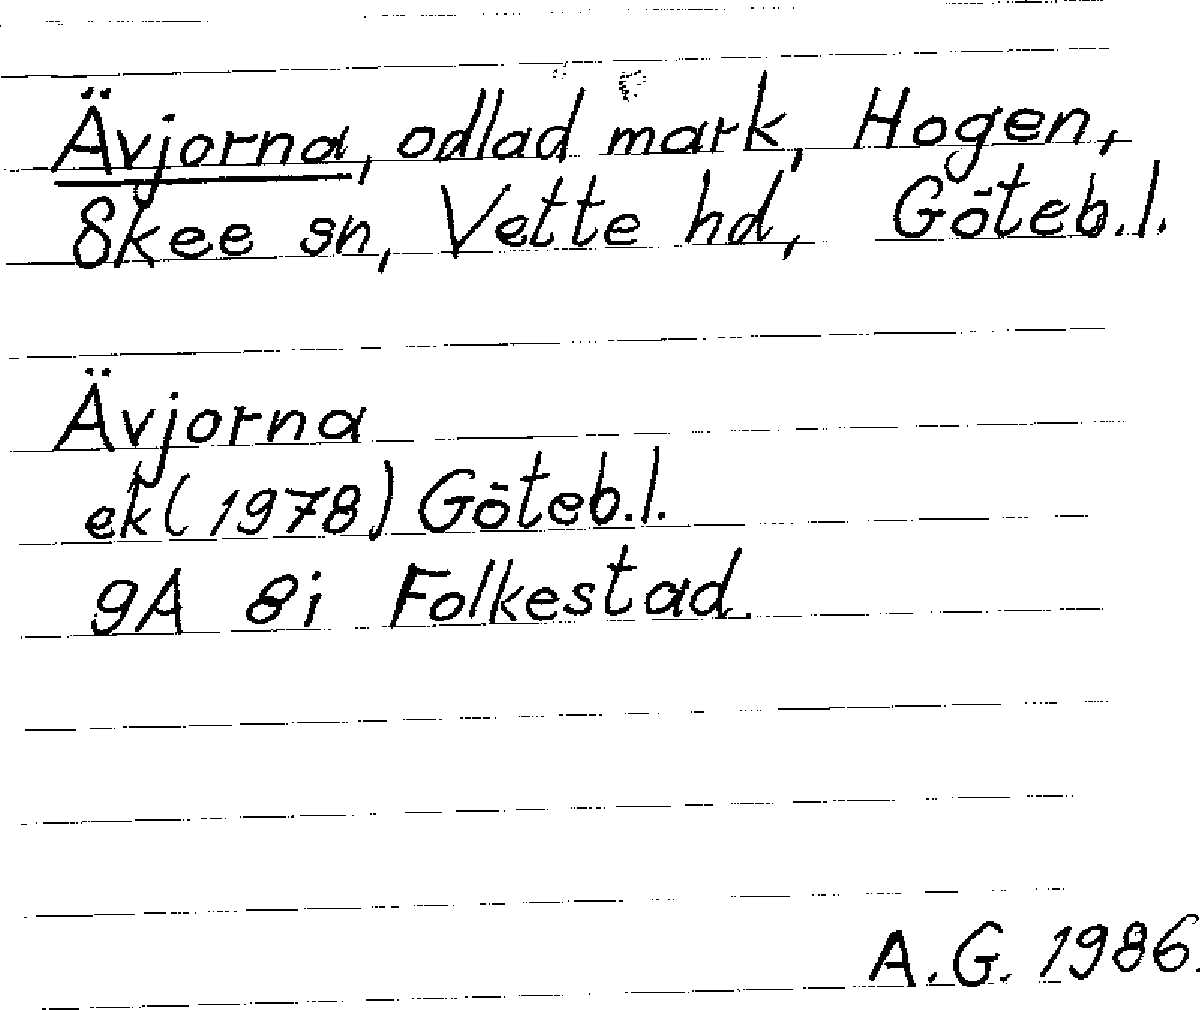 Ävjorna, odlad mark, Hogen,
Skee sn, Vette hd, Göteb.l.
Ävjorna
ek (1978) Göteb.l.
9A 8i Folkestad.
A.G. 1986.